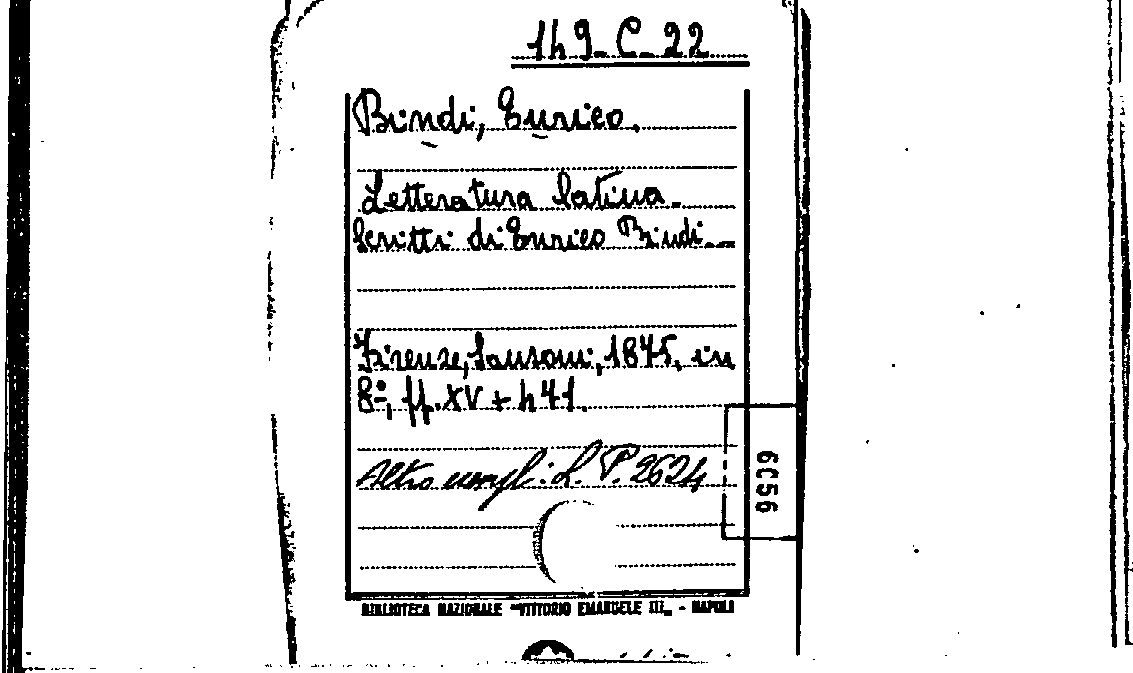 149-C-22
Bindi, Enrico.
Letteratura latina.
Scritti di Enrico Bindi.
Firenze, Sansoni, 1875, in
8º, pp. XV + 471.
Altro esempl.: L. P. 2624
6C56
BIBLIOTECA NAZIONALE "VITTORIO EMANUELE III„ - NAPOLI